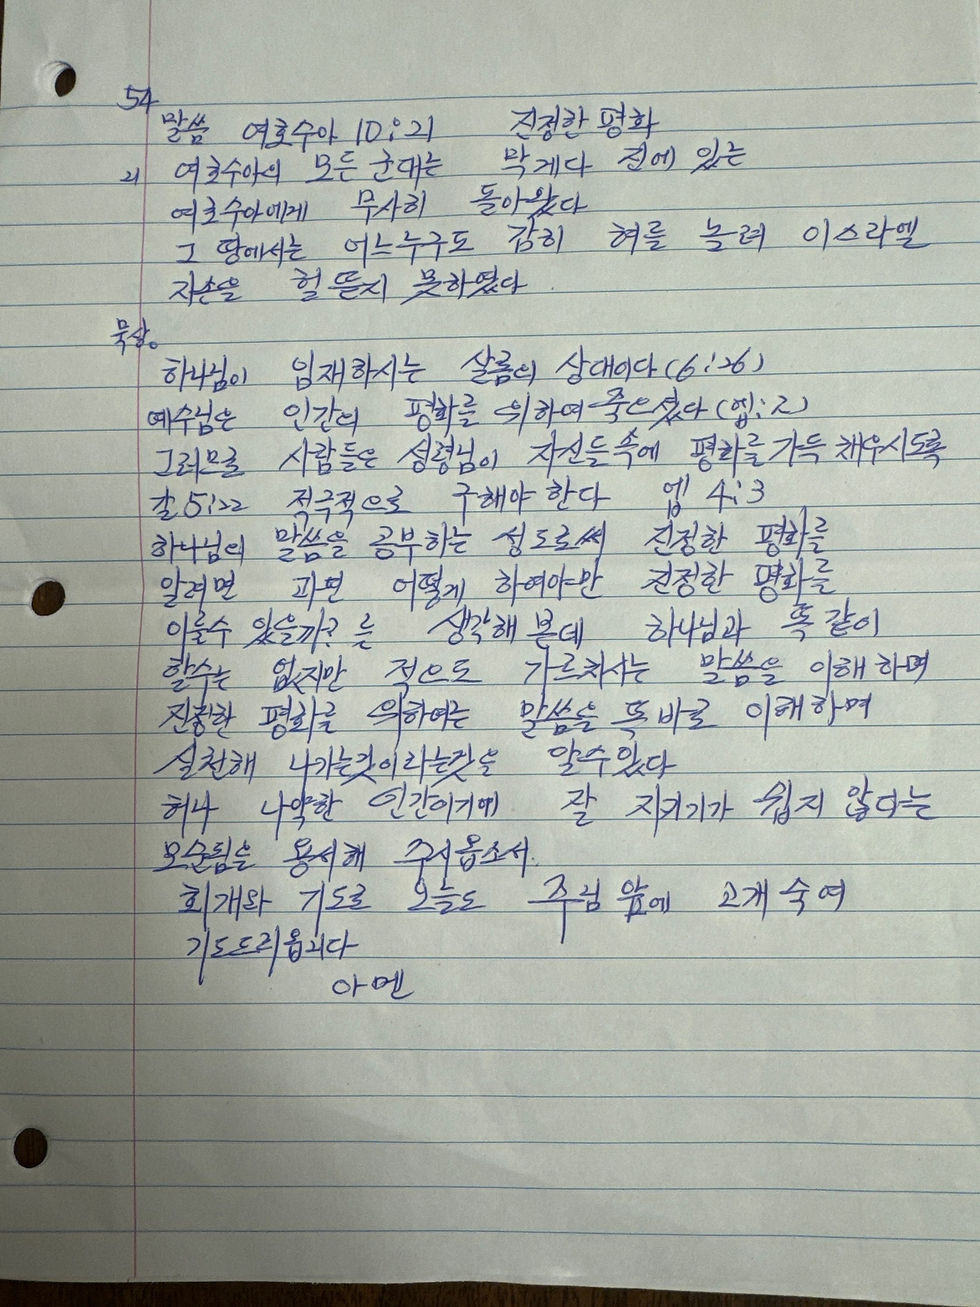 54
말씀 여호수아 10:21 진정한 평화
21 여호수아의 모든 군대는 막게다 진에 있는
여호수아에게 무사히 돌아왔다
그 땅에서는 어느누구도 감히 혀를 놀려 이스라엘
자손을 헐뜯지 못하였다
묵상。
하나님이 임재하시는 살롬의 상태이다 (6:26)
예수님은 인간의 평화를 위하여 죽으셨다 (엡:2)
그러므로 사람들은 성령님이 자신들 속에 평화를 가득 채우시도록
갈 5:22 적극적으로 구해야 한다 엡 4:3
하나님의 말씀을 공부하는 성도로써 진정한 평화를
알려면 과연 어떻게 하여야만 진정한 평화를
이룰수 있을까? 를 생각해 본데 하나님과 똑같이
할수는 없지만 적으도 가르치시는 말씀을 이해하며
진정한 평화를 위하여는 말씀을 똑바로 이해하며
실천해 나가는것이라는것을 알수있다
허나 나약한 인간이기에 잘 지키기가 쉽지 않다는
모습을 용서해 주시옵소서.
회개와 기도로 오늘도 주님 앞에 고개 숙여
기도드리옵니다
아멘